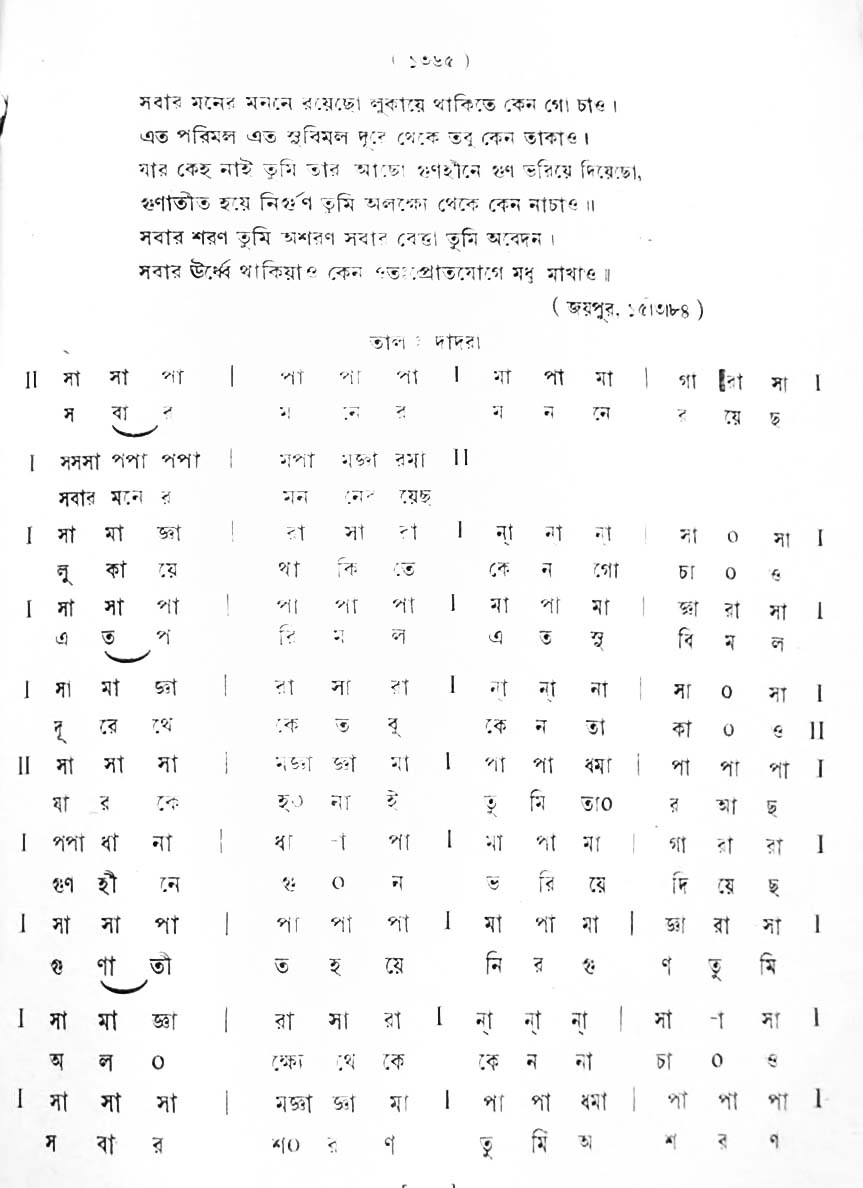 ( ১৩৬৫ )
সবার মনের মননে রয়েছো লুকায়ে থাকিতে কেন গো চাও।
এত পরিমল এত সুবিমল দূরে থেকে তবু কেন তাকাও।
যার কেহ নাই তুমি তার আছো গুণহীনে গুণ ভরিয়ে দিয়েছো,
গুণাতীত হয়ে নির্গুণ তুমি অলক্ষ্যে থেকে কেন নাচাও॥
সবার শরণ তুমি অশরণ সবার বেত্তা তুমি অবেদন।
সবার ঊর্ধ্বে থাকিয়াও কেন ওতঃপ্রোতযোগে মধু মাখাও॥
( জয়পুর, ১৫।৩।৮৪ )
তাল : দাদরা
II সা সা পা | পা পা পা I মা পা মা | গা রা সা I
স বা র ম নে র ম ন নে র য়ে ছ
I সসসা পপা পপা | মপা মজ্ঞা রমা II
সবার মনে র মন নের য়েছ
I সা মা জ্ঞা | রা সা রা I না্ না না্ | সা ০ সা I
লু কা য়ে থা কি তে কে ন গো চা ০ ও
I সা সা পা | পা পা পা I মা পা মা | জ্ঞা রা সা I
এ ত প রি ম ল এ ত সু বি ম ল
I সা মা জ্ঞা | রা সা রা I না্ না্ না | সা ০ সা I
দূ রে থে কে ত বু কে ন তা কা ০ ও II
II সা সা সা | মজ্ঞা জ্ঞা মা I পা পা ধমা | পা পা পা I
যা র কে হ০ না ই তু মি তা০ র আ ছ
I পপা ধা না | ধা -া পা I মা পা মা | গা রা রা I
গুণ হী নে গু ০ ন ভ রি য়ে দি য়ে ছ
I সা সা পা | পা পা পা I মা পা মা | জ্ঞা রা সা I
গু ণা তী ত হ য়ে নি র গু ণ তু মি
I সা মা জ্ঞা | রা সা রা I না্ না্ না্ | সা -া সা I
অ ল ০ ক্ষ্যে থে কে কে ন না চা ০ ও
I সা সা সা | মজ্ঞা জ্ঞা মা I পা পা ধমা | পা পা পা I
স বা র শ০ র ণ তু মি অ শ র ণ